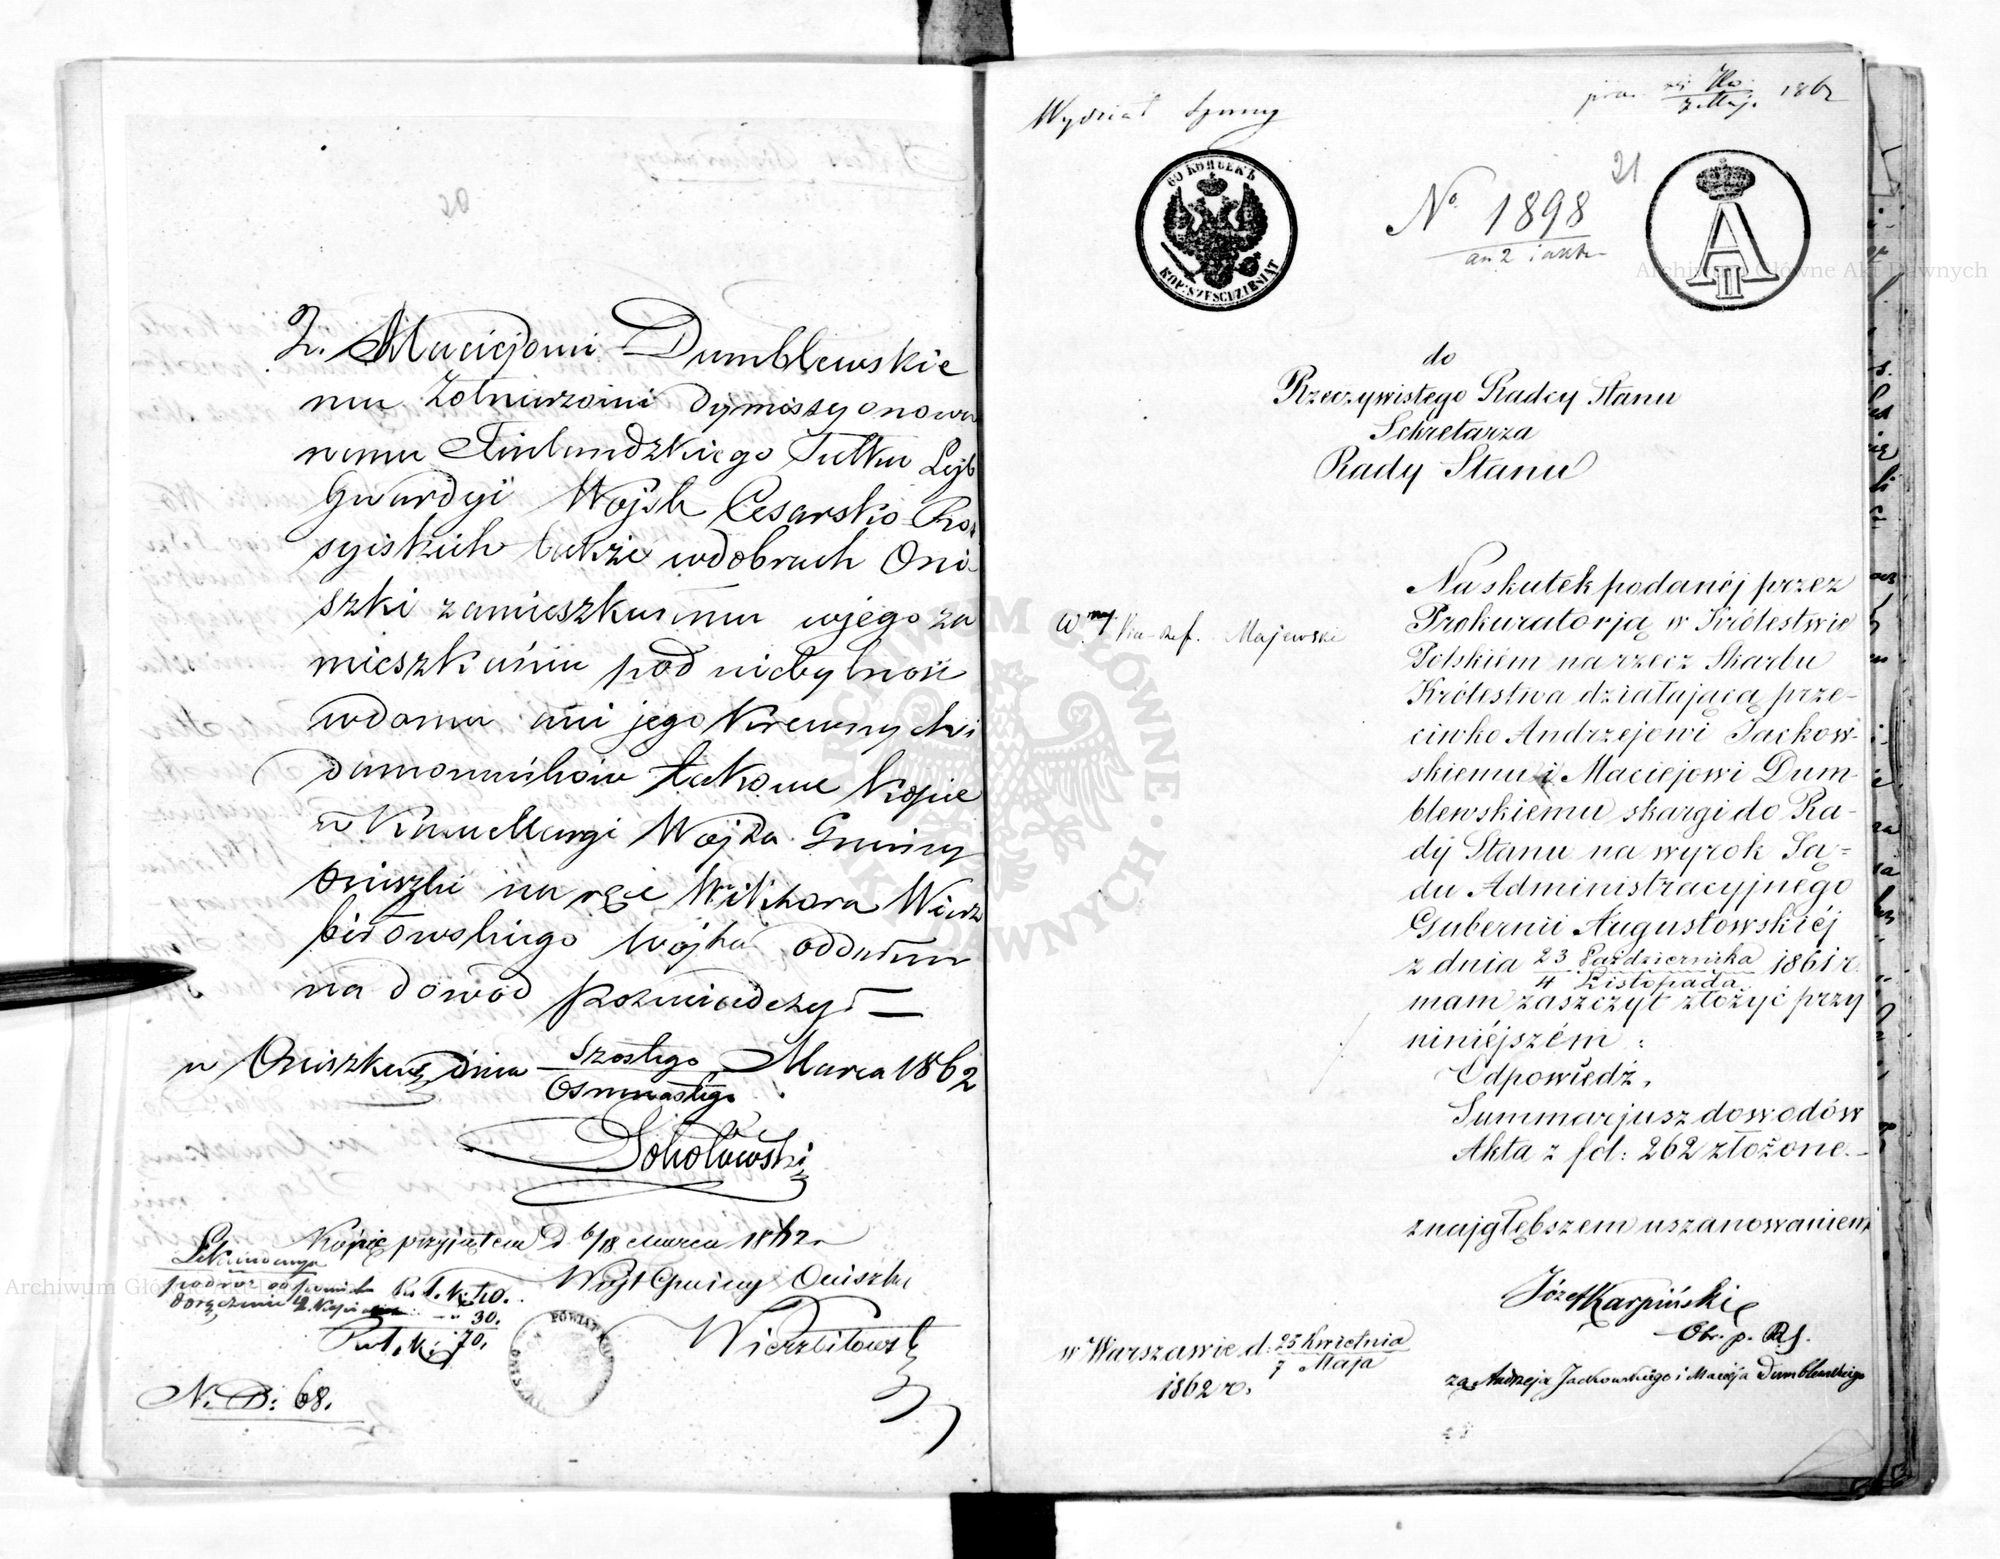 20
2. Maciejowi Dumblewskie
mu Żołnierzowi dymissyonowa
nemu Finlandzkiego Pułku Lejb
Gwardyi Wojsk Cesarsko-Ros
syiskich także wdobrach Oni
szki zamieszkałemu wjego za
mieszkaniu pod niebytność
wdomu ani jego Krewnych i
domowników takowe Kopie
w Kancellaryi Wójta Gminy
Oniszki na ręce Wiktora Wierz
biłowskiego Wójta oddałem
na dowód poświadczył —
w Oniszkach dnia Szóstego/Osmnastego Marca 1862
Sokołowski
Kopię przyjąłem D 6/18 Marca 1862 r
Wójt Gminy Oniszki
Wierzbiłowski
doręczenie 2. Kopii
Rs. 1. K. 40.
" 30.
Rs. 1. K. 70.
POWIAT
N. D: 68.
Wydział Sporny
7 Maja 1862
60 КОПѢЕКЪ
KOP: SZEŚĆDZIESIĄT
No 1898
21
A II
do
Rzeczywistego Radcy Stanu
Sekretarza
Rady Stanu
Majewski
Na skutek podanéj przez
Prokuratorją w Królestwie
Polskiém na rzecz Skarbu
Królestwa działającą prze-
ciwko Andrzejowi Jackow-
skiemu i Maciejowi Dum-
blewskiemu skargi do Ra-
dy Stanu na wyrok Są-
du Administracyjnego
Gubernii Augustowskiéj
z dnia 23 Października/4 Listopada 1861 r.
mam zaszczyt złożyć przy
niniéjszém:
Odpowiedź,
Summarjusz dowodów
Akta z fol: 262 złożone.-
z najgłębszem uszanowaniem
Józef Karpiński
Obr. p. RS.
za Andrzeja Jackowskiego i Macieja Dumblewskiego
w Warszawie d. 25 Kwietnia/7 Maja
1862 r.
ARCHIWUM GŁÓWNE AKT DAWNYCH
Archiwum Główne Akt Dawnych
Archiwum Główne Akt Dawnych